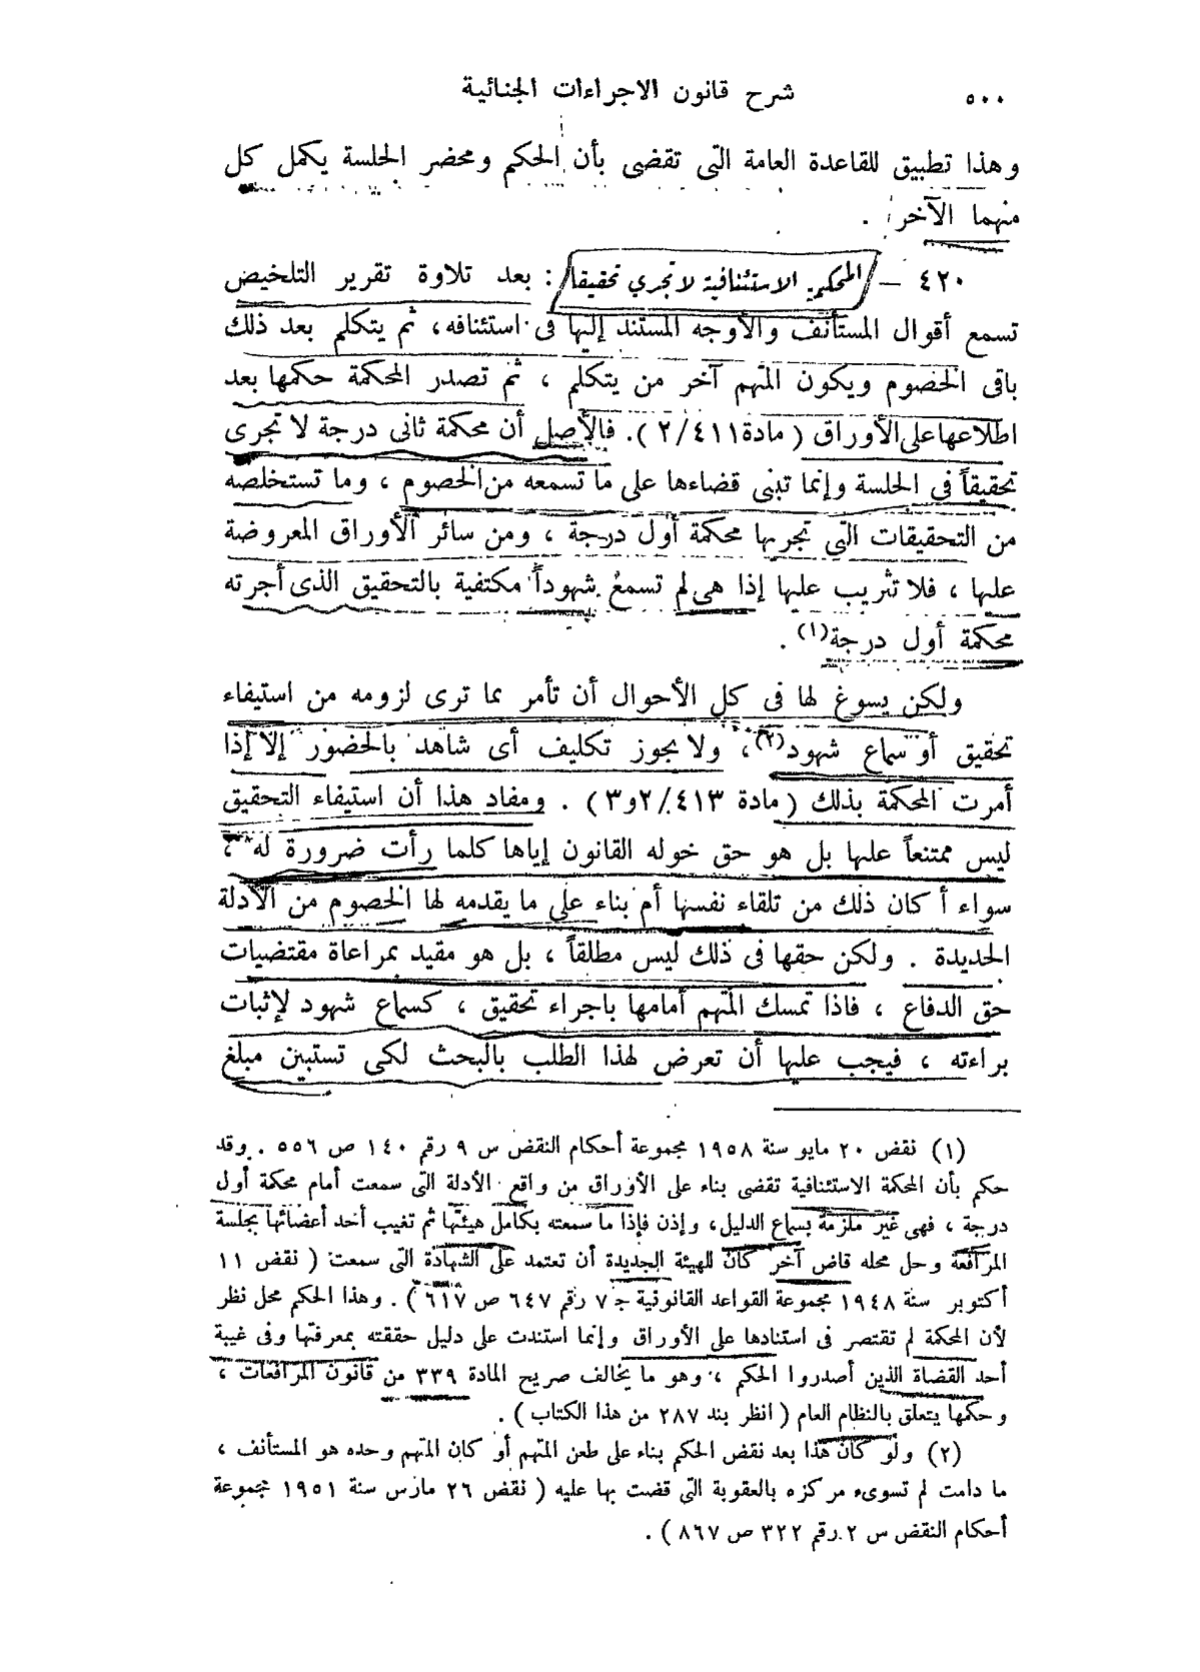 ٥٠٠
شرح قانون الاجراءات الجنائية
وهذا تطبيق للقاعدة العامة التى تقضى بأن الحكم ومحضر الجلسة يكمل كل
منهما الآخر .
٤٢٠ — المحكمة الاستئنافية لا تجرى تحقيقا : بعد تلاوة تقرير التلخيص
تسمع أقوال المستأنف والأوجه المستند إليها فى استئنافه ، ثم يتكلم بعد ذلك
باقى الخصوم ويكون المتهم آخر من يتكلم ، ثم تصدر المحكمة حكمها بعد
اطلاعها على الأوراق ( مادة ٤١١/٢ ) . فالأصل أن محكمة ثانى درجة لا تجرى
تحقيقاً فى الجلسة وإنما تبنى قضاءها على ما تسمعه من الخصوم ، وما تستخلصه
من التحقيقات التى تجريها محكمة أول درجة ، ومن سائر الأوراق المعروضة
عليها ، فلا تثريب عليها إذا هى لم تسمع شهوداً مكتفية بالتحقيق الذى أجرته
محكمة أول درجة (١) .
ولكن يسوغ لها فى كل الأحوال أن تأمر بما ترى لزومه من استيفاء
تحقيق أو سماع شهود (٢) ، ولا يجوز تكليف أى شاهد بالحضور إلا إذا
أمرت المحكمة بذلك ( مادة ٤١٣/٢و٣ ) . ومفاد هذا أن استيفاء التحقيق
ليس ممتنعاً عليها بل هو حق خوله القانون إياها كلما رأت ضرورة له ،
سواء أ كان ذلك من تلقاء نفسها أم بناء على ما يقدمه لها الخصوم من الأدلة
الجديدة . ولكن حقها فى ذلك ليس مطلقاً ، بل هو مقيد بمراعاة مقتضيات
حق الدفاع ، فاذا تمسك المتهم أمامها باجراء تحقيق ، كسماع شهود لإثبات
براءته ، فيجب عليها أن تعرض لهذا الطلب بالبحث لكى تستبين مبلغ
(١) نقض ٢٠ مايو سنة ١٩٥٨ مجموعة أحكام النقض س ٩ رقم ١٤٠ ص ٥٥٦ . وقد
حكم بأن المحكمة الاستئنافية تقضى بناء على الأوراق من واقع الأدلة التى سمعت أمام محكمة أول
درجة ، فهى غير ملزمة بسماع الدليل ، وإذن فإذا ما سمعته بكامل هيئتها ثم تغيب أحد أعضائها بجلسة
المرافعة وحل محله قاض آخر كان للهيئة الجديدة أن تعتمد على الشهادة التى سمعت ( نقض ١١
أكتوبر سنة ١٩٤٨ مجموعة القواعد القانونية ج ٧ رقم ٦٤٧ ص ٦١٧ ) . وهذا الحكم محل نظر
لأن المحكمة لم تقتصر فى استنادها على الأوراق وإنما استندت على دليل حققته بمعرفتها وفى غيبة
أحد القضاة الذين أصدروا الحكم ، وهو ما يخالف صريح المادة ٣٣٩ من قانون المرافعات ،
وحكمها يتعلق بالنظام العام ( انظر بند ٢٨٧ من هذا الكتاب ) .
(٢) ولو كان هذا بعد نقض الحكم بناء على طعن المتهم أو كان المتهم وحده هو المستأنف ،
ما دامت لم تسوىء مركزه بالعقوبة التى قضت بها عليه ( نقض ٢٦ مارس سنة ١٩٥١ مجموعة
أحكام النقض س ٢ رقم ٣٢٢ ص ٨٦٧ ) .